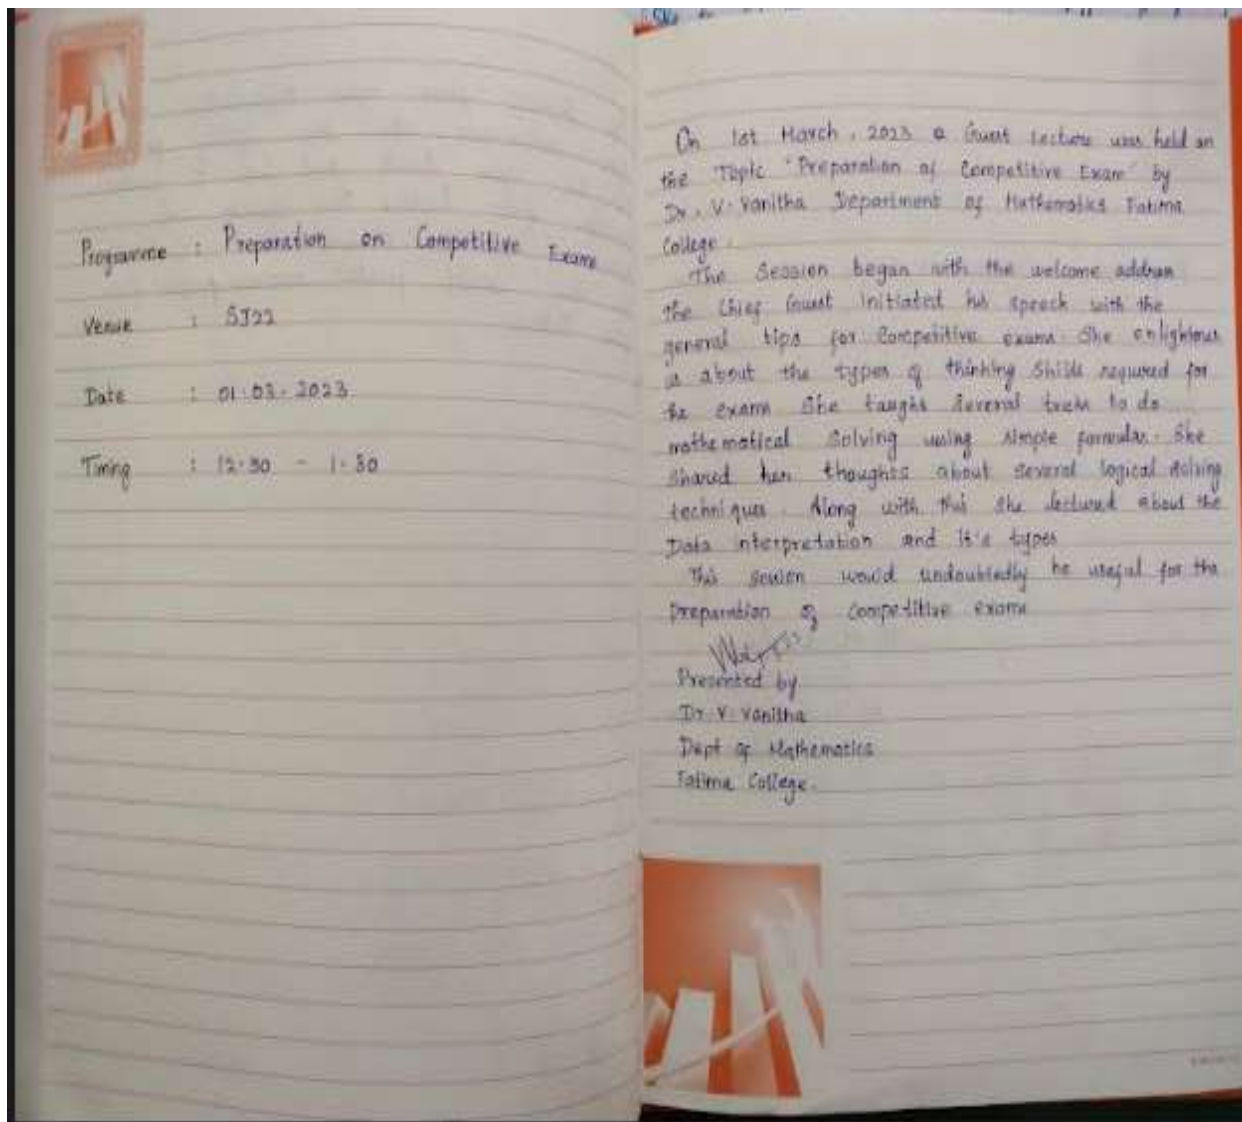 Programme : Preparation on Competitive Exams
Venue : SJ22
Date : 01.03.2023
Timing : 12.30 - 1.30
On 1st March, 2023 a Guest Lecture was held on
the Topic "Preparation of Competitive Exam" by
Dr. V. Vanitha Department of Mathematics Fatima
College.
The Session began with the welcome address
the Chief Guest initiated his speech with the
general tips for Competitive exams. She
about the types of thinking Skills required for
the exams She taught Several tricks to do
mathematical Solving using simple formulas. She
Shared her thoughts about several logical solving
techniques. Along with this She lectured about the
Data interpretation and it's types
This session would undoubtedly be useful for the
Preparation of Competitive exams
Presented by
Dr. V. Vanitha
Dept of Mathematics
Fatima College.